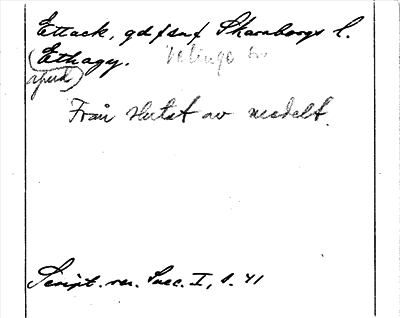 Ettack, gd f snf Skaraborgs l.
(Ethagy. Velinge
Från slutet av medelt.
Script. rer. Suec. I, s. 41